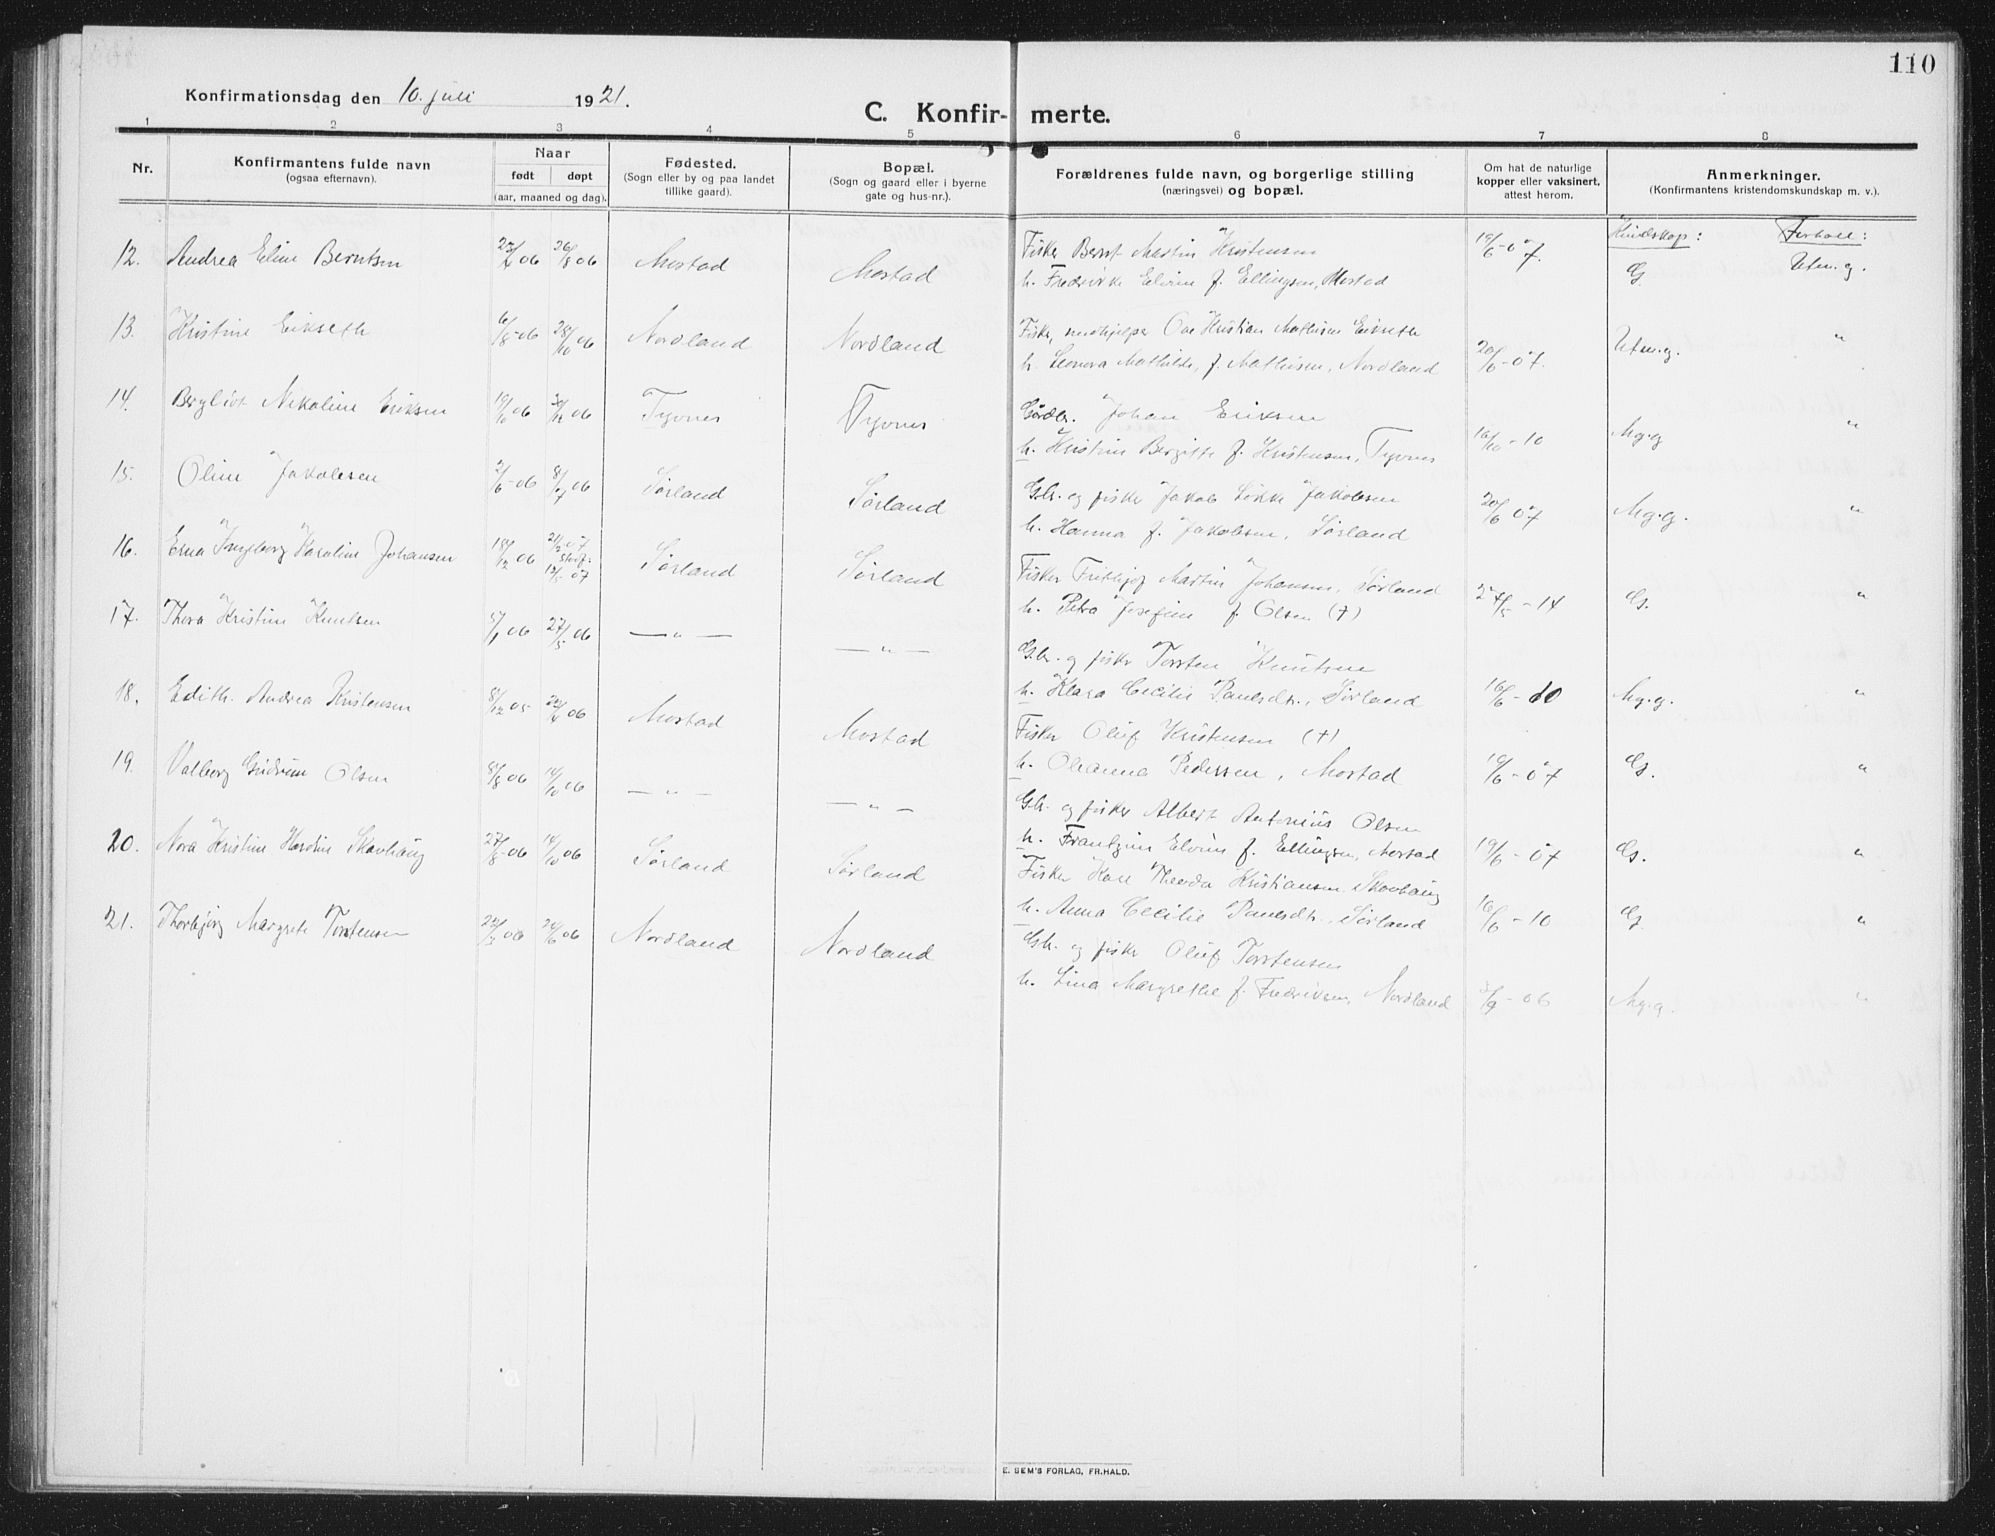 110
Konfirmationsdag den 10. juli 1921.
C. Konfirmerte.
1 2 3 4 5 6 7 8
Nr.
Konfirmantens fulde navn
(ogsaa efternavn).
Naar
født døpt
(aar, maaned og dag).
Fødested.
(Sogn eller by og paa landet
tillike gaard).
Bopæl.
(Sogn og gaard eller i byerne
gate og hus-nr.).
Forældrenes fulde navn, og borgerlige stilling
(næringsvei) og bopæl.
Om hat de naturlige
kopper eller vaksinert,
attest herom.
Anmerkninger.
(Konfirmantens kristendomskundskap m. v.).
Kundskap: Forhold:
12. Andrea Eline Berntsen 26/8 06 Mostad Mostad Fisker Bernt Martin Kristensen 19/6-07 G. Utm.g.
h. Fredrikke Elvine f. Ellingsen, Mostad
13. Kristine Eikseth 6/8-06 28/10 06 Nordland Nordland Fisker, Ove Kristian Mathisen Eikseth
h. Leonora Mathilde, f. Mathisen, Nordland 20/6-07. Utm.g. "
14. Bergliot Nikoline Eriksen 19/10 06 06 Tyvnes Tyvnes Gårdbr. Johan Eriksen
h. Kristine Bergitte f. Kristensen, Tyvnes 16/10-10 Mg.g "
15. Oline Jakobsen 2/6-06 8/7 06 Sørland Sørland Gbr. og fisker Jakob Løkke Jakobsen
h. Hanna f. Jakobsen, Sørland 20/6 07 Mg.g. "
16. Erna Ingeborg Karoline Johansen 18/12 06 21/2 07 Stadf. 12/5-07 Sørland Sørland Fisker Frithjof Martin Johansen, Sørland
h. Petra Josefine f. Olsen (†) 27/5-14 G. "
17. Thora Kristine Knutsen 5/1 06 27/5 06 — " — — " — Gbr. og fisker Torsten Knutsen
h. Klara Cecilie Paulsdtr., Sørland 16/6-10 Mg.g. "
18. Edith Andrea Kristensen 8/12 05 22/4 06 Mostad Mostad Fisker Oluf Kristensen (†)
h. Ohanna Pedersen, Mostad 19/6-07 G. "
19. Valborg Gudrun Olsen 8/8 06 14/10 06 — " — — " — Gbr. og fisker Albert Antonius Olsen
h. Frantzine Elvine f. Ellingsen, Mostad 19/6-07 G. "
20. Nora Kristine Hardine Skavhaug 27/8-06 14/10 06 Sørland Sørland Fisker Karl Theodor Kristiansen Skavhaug
h. Anna Cecilie Paulsdtr., Sørland 16/6-10 G. "
21. Thorbjørg Margrete Torstensen 22/3 06 24/6 06 Nordland Nordland Gbr. og fisker Oluf Torstensen
h. Lina Margrethe f. Fredriksen, Nordland 3/9-06 Mg.g. "
E. SEM'S FORLAG, FR.HALD.